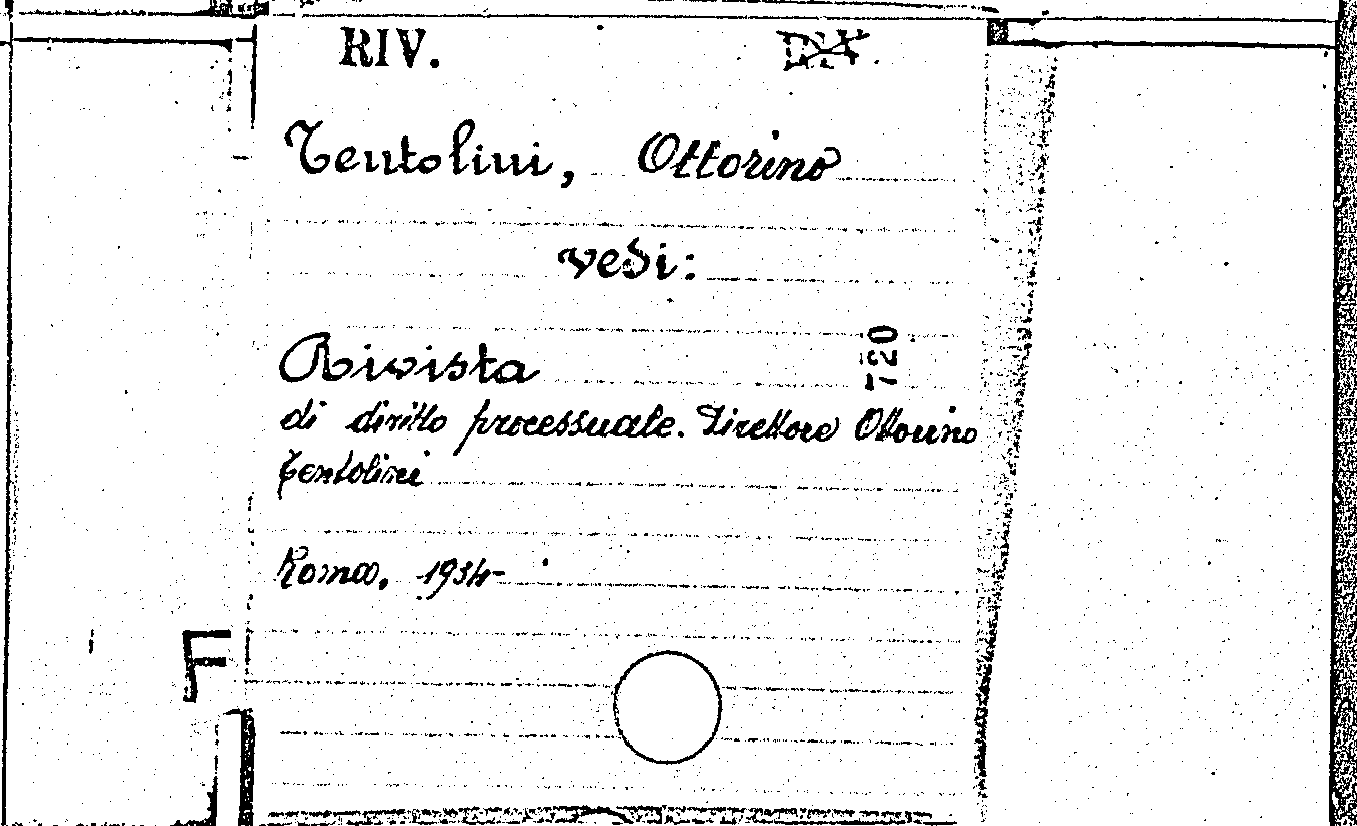 RIV.
Tentolini, Ottorino
vedi:
720
Rivista
di diritto processuale. Direttore Ottorino
Tentolini
Roma, 1934-